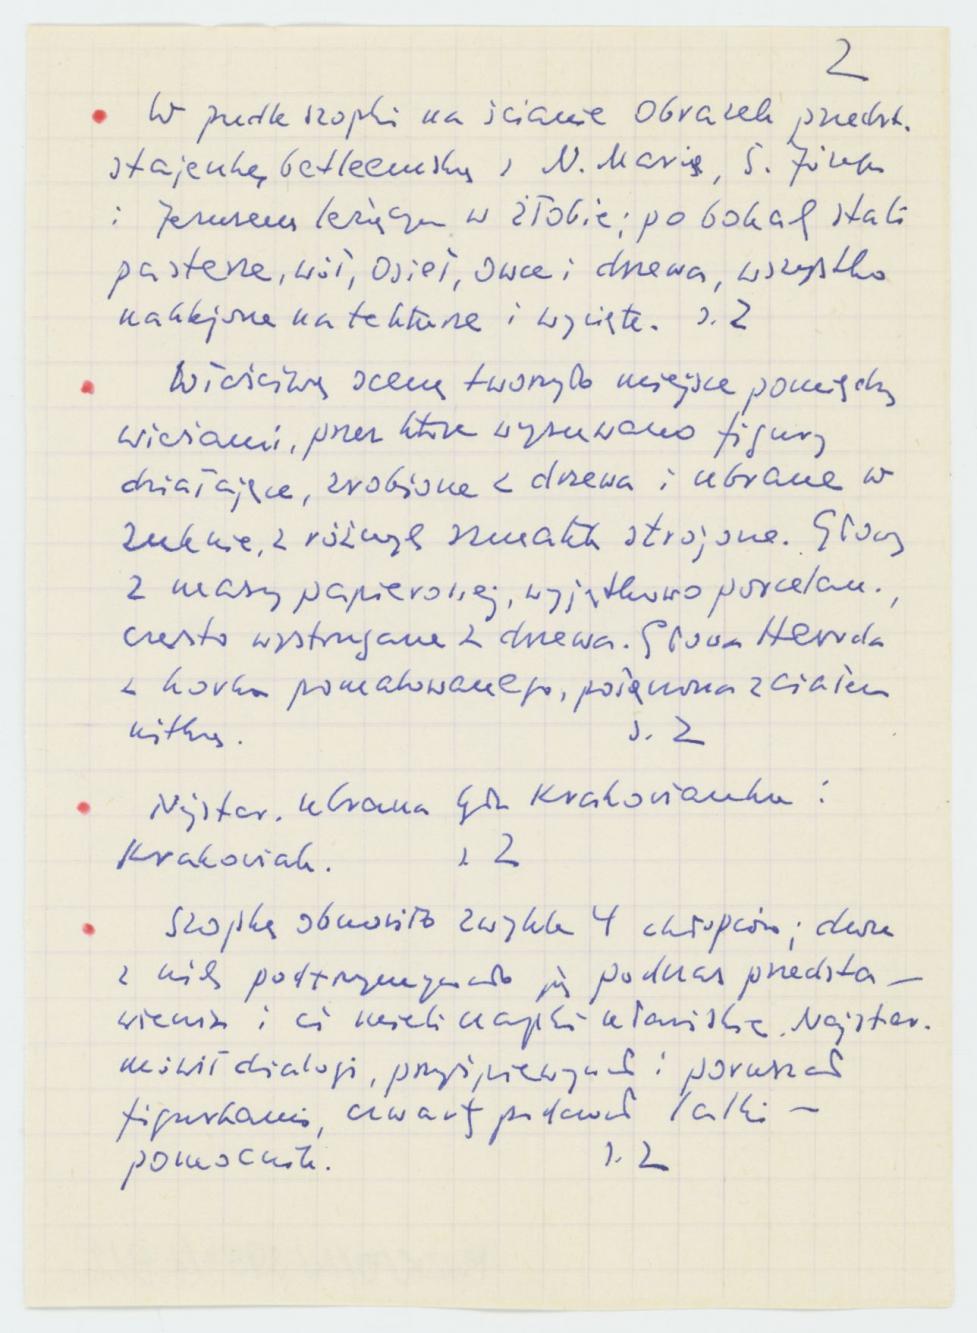 2
W pudle szopki na ścianie obrazek przedst.
stajenkę betleemską z N. Marią, Ś. Józefem
i Jezusem leżącym w żłobie; po bokach stali
pasterze, wół, osieł, owce i drzewa, wszystko
naklejone na tekturze i wycięte. s. 2
Właściwą scenę tworzyło miejsce pomiędzy
wieżami, przez które wysuwano figury
działające, zrobione z drzewa i ubrane w
suknie, z różnych szmatek strojone. Głowy
z masy papierowej, wyjątkowo porcelan.,
często wystrugane z drzewa. Głowa Heroda
z korka pomalowanego, połączona z ciałem
nitką. s. 2
Najstar. ubrana była Krakowianka i
Krakowiak. s. 2
Szopkę obnosiło zwykle 4 chłopców; dwu
z nich podtrzymywało ją podczas przedsta-
wienia i ci mieli czapki ułańskie. Najstar.
mówił dialogi, przyśpiewywał i poruszał
figurkami, czwarty podawał lalki –
pomocnik. s. 2